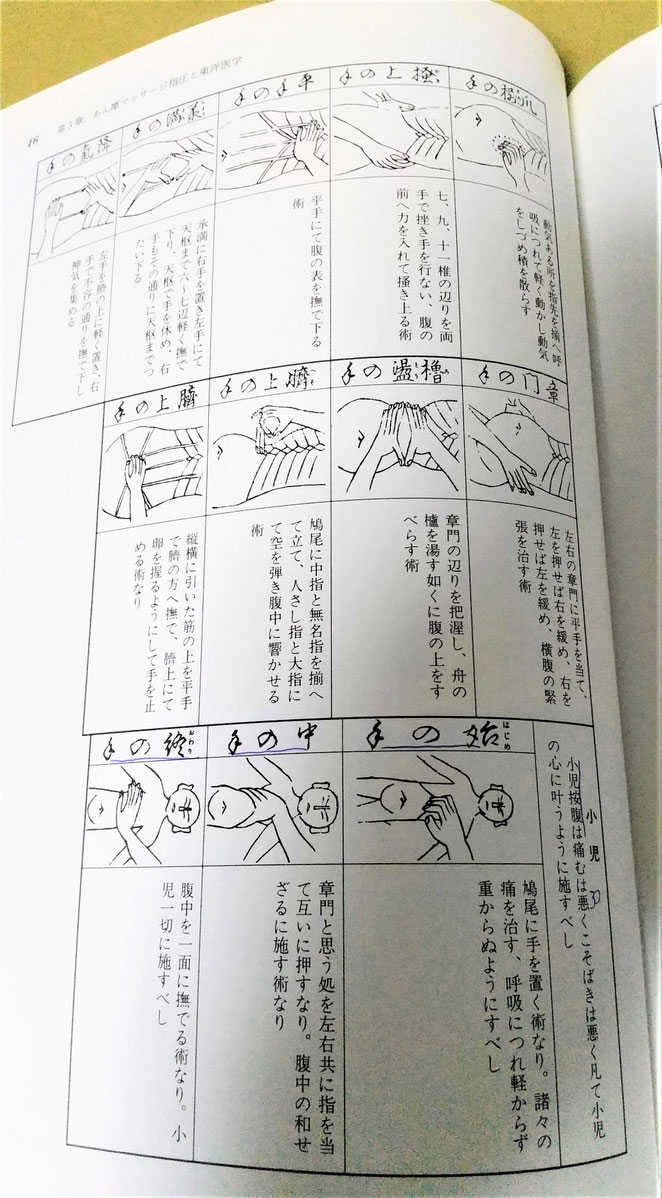 46
第3章 あん摩マッサージ指圧と東洋医学
の手
動気ある所を指先を揃へ呼
吸につれて軽く動かし動気
をしづめ積を散らす
上の手
七、九、十一椎の辺りを両
手で挫き手を行ない、腹の
前へ力を入れて搔き上る術
平手の手
平手にて腹の表を撫で下る
術
承満の手
承満に右手を置き左手にて
天枢まで六〜七辺軽く撫で
下り、天枢で手を休め、右
手もその通りに天枢までつ
たい下る
降氣の手
左手を臍の上に軽く置き、右
手で不容の通りを撫で下し
神気を集める
章門の手
左右の章門に平手を当て、
左を押せば右を緩め、右を
押せば左を緩め、横腹の緊
張を治す術
櫓盪の手
章門の辺りを把渥し、舟の
櫨を湯す如くに腹の上をす
べらす術
臍上の手
鳩尾に中指と無名指を揃へ
て立て、人さし指と大指に
て空を弾き腹中に響かせる
術
臍上の手
縦横に引いた筋の上を平手
で臍の方へ撫で、臍上にて
卵を握るようにして手を止
める術なり
小児
小児按腹は痛むは悪くこそばきは悪く凡て小児
の心に叶うように施すべし
始の手
はじめ
鳩尾に手を置く術なり。諸々の
痛を治す、呼吸につれ軽からず
重からぬようにすべし
中の手
章門と思う処を左右共に指を当
て互いに押すなり。腹中の和せ
ざるに施す術なり
終の手
おわり
腹中を一面に撫でる術なり。小
児一切に施すべし